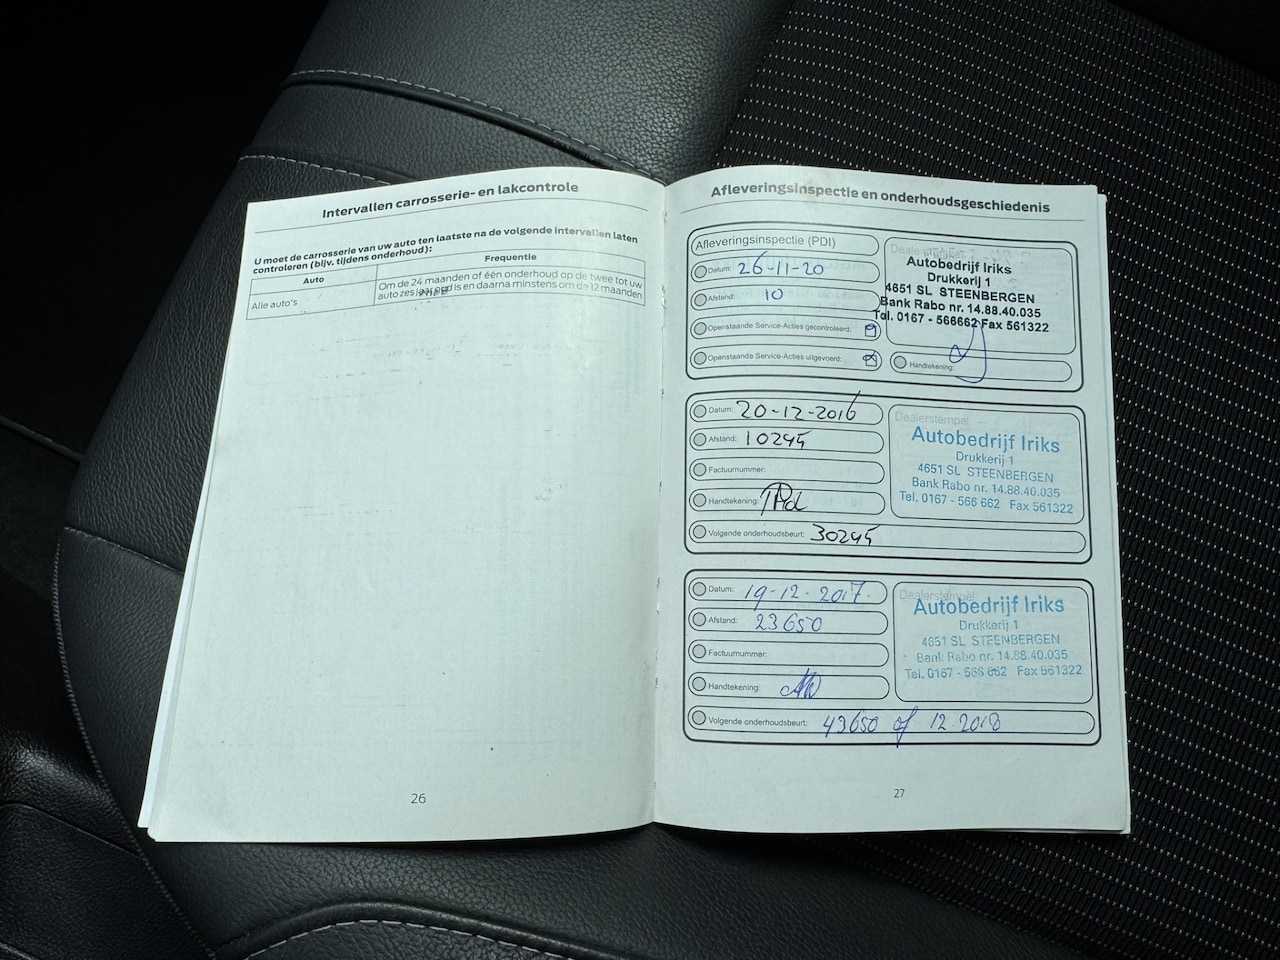 Intervallen carrosserie- en lakcontrole
U moet de carrosserie van uw auto ten laatste na de volgende intervallen laten
controleren (bijv. tijdens onderhoud):
Auto
Frequentie
Alle auto's
Om de 24 maanden of één onderhoud op de twee tot uw
auto zes jaar oud is en daarna minstens om de 12 maanden
26
Afleveringsinspectie en onderhoudsgeschiedenis
Afleveringsinspectie (PDI)
Datum: 26-11-20
Afstand: 10
Openstaande Service-Acties gecontroleerd:
Openstaande Service-Acties uitgevoerd:
Dealerstempel
Autobedrijf Iriks
Drukkerij 1
4651 SL STEENBERGEN
Bank Rabo nr. 14.88.40.035
Tel. 0167 - 566662 Fax 561322
Handtekening:
Datum: 20-12-2016
Afstand: 10245
Factuurnummer:
Handtekening:
Volgende onderhoudsbeurt: 30245
Dealerstempel
Autobedrijf Iriks
Drukkerij 1
4651 SL STEENBERGEN
Bank Rabo nr. 14.88.40.035
Tel. 0167 - 566 662 Fax 561322
Datum: 19-12-2017.
Afstand: 23650
Factuurnummer:
Handtekening:
Volgende onderhoudsbeurt: 43650 of 12.2018
Dealerstempel
Autobedrijf Iriks
Drukkerij 1
4651 SL STEENBERGEN
Bank Rabo nr. 14.88.40.035
Tel. 0167 - 566 662 Fax 561322
27